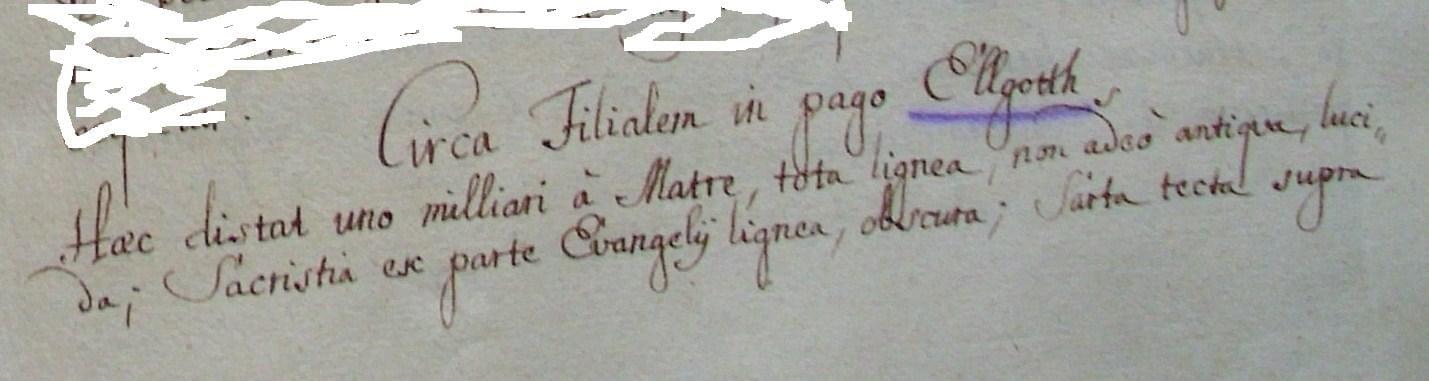 Circa Filialem in pago Ellgotth.
Hæc distat uno milliari à Matre, tota lignea, non adeò antiqua, luci„
da; Sacristia ex parte Evangelij lignea, obscura; Sarta tecta supra